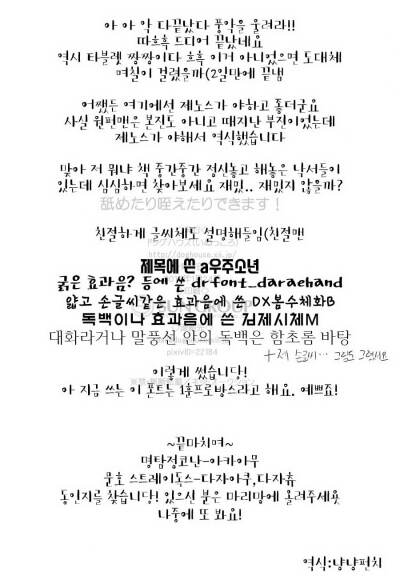 아 아 악 다끝났다 풍악을 울려라!!
따흐흑 드디어 끝났네요
역시 타블렛 짱짱이다 흐흑 이거 아니었으면 도대체
며칠이 걸렸을까(2일만에 끝냄
어쨌든 여기에선 제노스가 야하고 풀더군요
사실 원펀맨은 본진도 아니고 때지난 부진이었는데
제노스가 야해서 역식했습니다
맞아 저 뭐냐 책 중간중간 정신놓고 해놓은 낙서들이
있는데 심심하면 찾아보세요 재밌.. 재밌지 않을까?
舐めたり咥えたりできます！
친절하게 글씨체도 설명해줌(친절맨
제목에 쓴 a우주소년
굵은 효과음? 등에 쓴 drfont_daraehand
얇고 손글씨같은 효과음에 쓴 DX봄수체화B
독백이나 효과음에 쓴 컴제시체M
대화라거나 말풍선 안의 독백은 함초롬 바탕
pixivID-22184
이렇게 썼습니당!
아 지금 쓰는 이 폰트는 1훈프로방스라고 해요. 예쁘죠!
~끝마치며~
명탐정코난-아카아무
문호 스트레이독스-다자아쿠,다자츄
동인지를 찾습니다! 있으신 분은 마리망에 올려주세욧
나중에 또 봐요!
역식:냥냥펀치